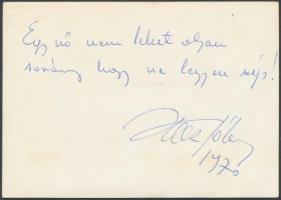 Egy nő nem lehet olyan
sovány hogy ne legyen szép!
1970